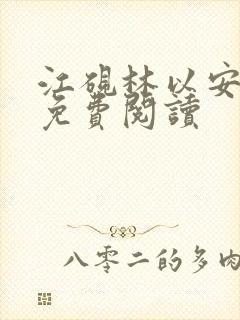 江硯林以安
免費閱讀
八零二的多肉